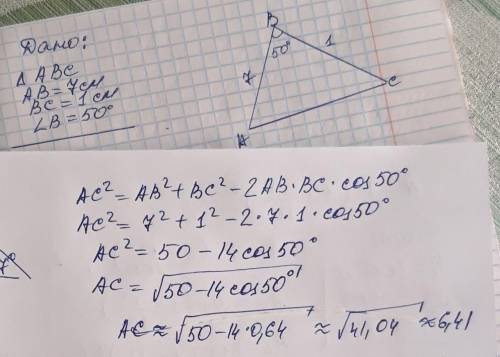 Дано:
Δ ABC
AB = 7 см
BC = 1 см
∠B = 50°
B
50°
1
7
C
A
AC² = AB² + BC² - 2AB · BC · cos 50°
AC² = 7² + 1² - 2 · 7 · 1 · cos 50°
AC² = 50 - 14 cos 50°
AC = √(50 - 14 cos 50°)
AC ≈ √(50 - 14 · 0,64) ≈ √41,04 ≈ 6,41